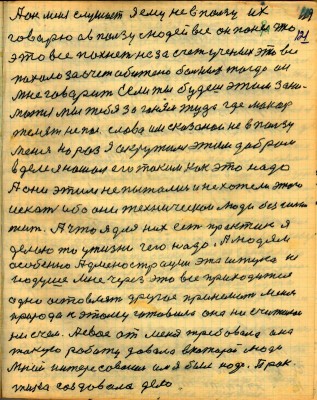 121
А он меня слушает я ему не в пользу их
говорю а в пользу людей все он понял что
это все пахнет не за счет ученых это все
пахало за счет обиженных больных тогда он
мне говорит Если ты будеш этим зани
маться мы тебя загоним туда где макар
телят не пас. слова им сказаны не в пользу
меня но раз я окружил этим добром
в деле нашол его таким как это надо
А они этим не питались и не хотели этого
искать ибо они технические люди без
А что я для них есть практик я
делаю то у жизни чего надо. А людям
особенно Администрации эта штука не
годуще мне через это все приходится
одно оставлять другое принимать меня
природа к этому готовила она не считалась
ни с чем. А свое от меня требовала она
такую работу давала в которой люди
мной интересовались им я был надо. Прак
тика создавала дело